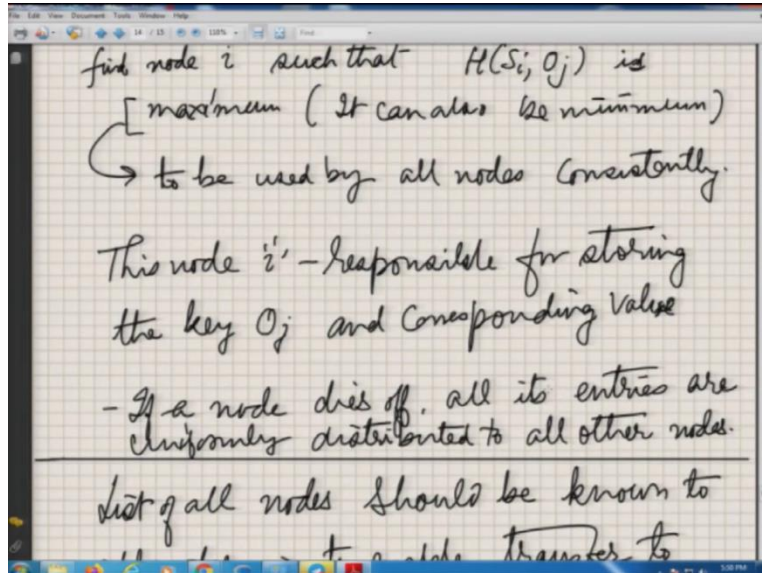 File Edit View Document Tools Window Help
14 / 15 118% Find
find node i such that H(Si, Oj) is
maximum (It can also be minimum)
to be used by all nodes consistently.
This node 'i' - responsible for storing
the key Oj and corresponding value
- If a node dies off, all its entries are
uniformly distributed to all other nodes.
List of all nodes should be known to
transfer to
5:50 PM